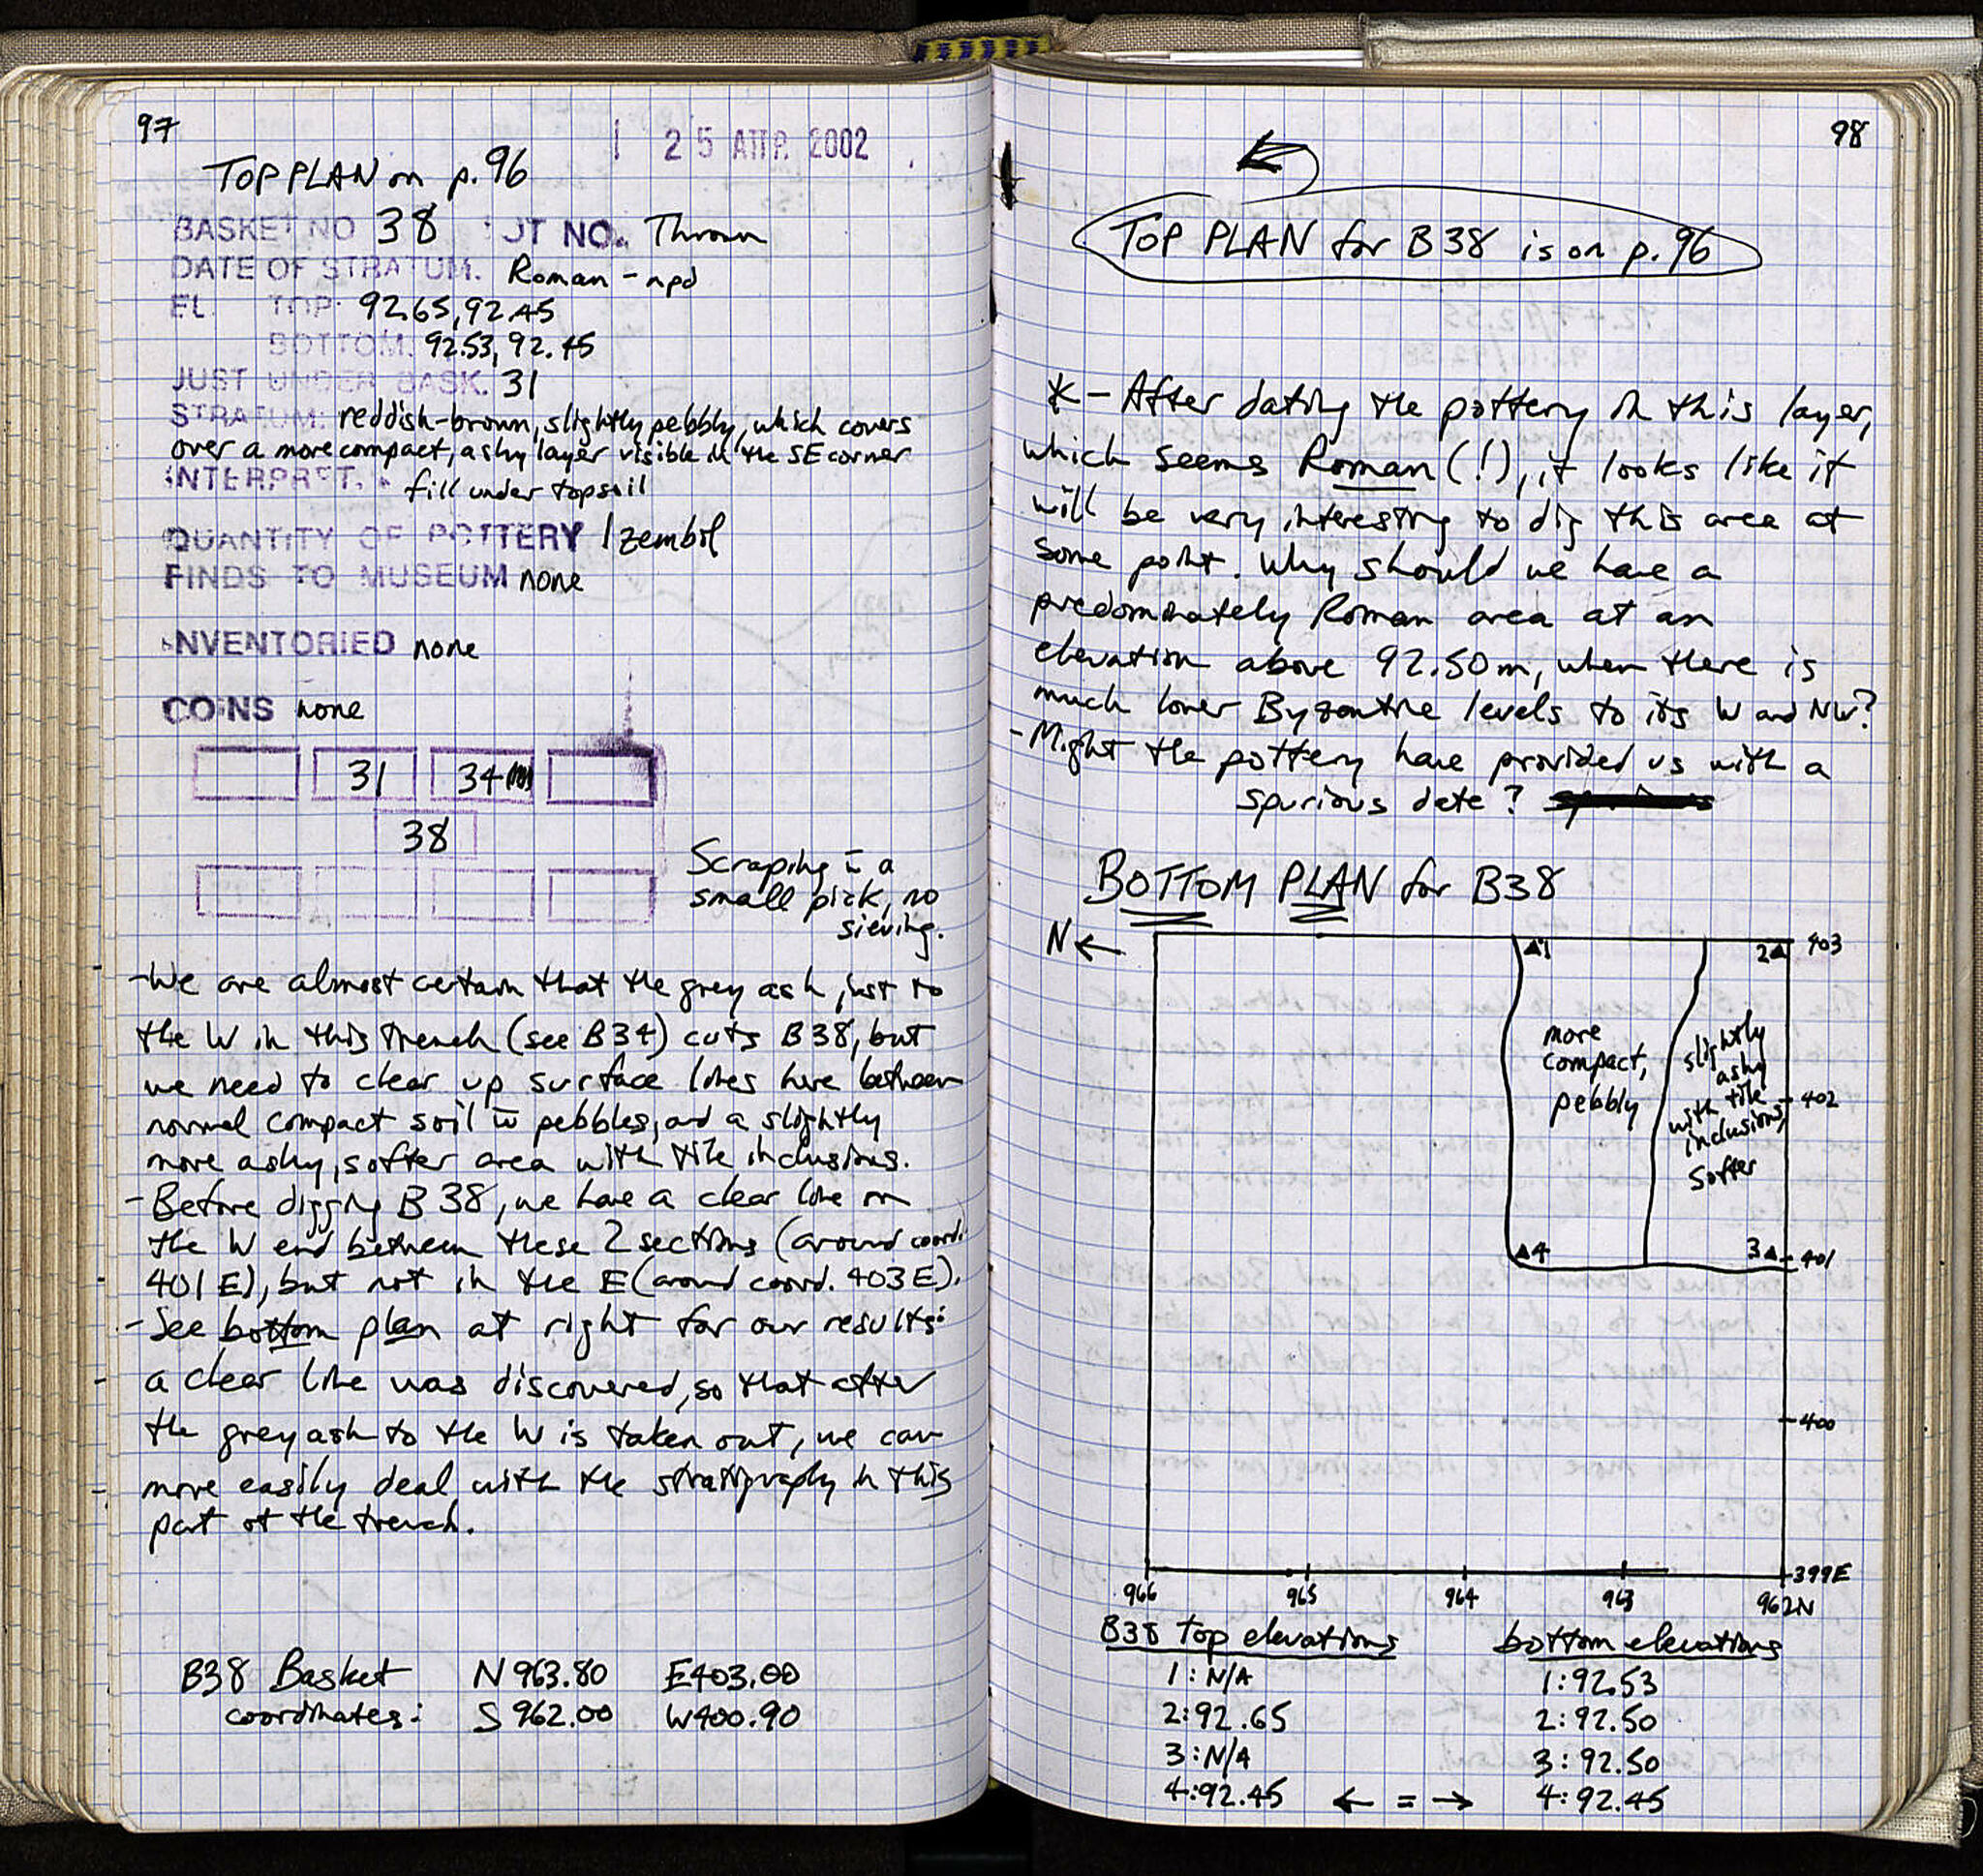 97
25 ΑΠΡ. 2002
TOP PLAN on p. 96
BASKET NO 38 JT NO. Thrown
DATE OF STRATUM. Roman - npd
EL. TOP: 92.65, 92.45
BOTTOM: 92.53, 92.45
JUST UNDER BASK. 31
STRATUM: reddish-brown, slightly pebbly, which covers
over a more compact, ashy layer visible in the SE corner
INTERPRET. fill under topsoil
QUANTITY OF POTTERY 1 zembil
FINDS TO MUSEUM none
INVENTORIED none
COINS none
31 34
38
Scraping c̄ a
small pick, no
sieving.
- We are almost certain that the grey ash just to
the W in this trench (see B34) cuts B38, but
we need to clear up surface lines here between
normal compact soil c̄ pebbles, and a slightly
more ashy, softer area with tile inclusions.
- Before digging B38, we have a clear line on
the W end between these 2 sections (around coord.
401 E), but not in the E (around coord. 403 E).
- See bottom plan at right for our results:
a clear line was discovered, so that after
the grey ash to the W is taken out, we can
more easily deal with the stratigraphy in this
part of the trench.
B38 Basket N 963.80 E403.00
coordinates: S 962.00 W400.90
98
TOP PLAN for B38 is on p. 96
* - After dating the pottery in this layer,
which seems Roman (!), it looks like it
will be very interesting to dig this area at
some point. Why should we have a
predominately Roman area at an
elevation above 92.50 m, when there is
much lower Byzantine levels to its W and NW?
- Might the pottery have provided us with a
spurious date?
BOTTOM PLAN for B38
N ←
1 2 403
more
compact,
pebbly
slightly
ashy
with tile
inclusions,
softer
402
4 3 401
400
399E
966 965 964 963 962N
B38 top elevations bottom elevations
1: N/A 1: 92.53
2: 92.65 2: 92.50
3: N/A 3: 92.50
4: 92.45 ← = → 4: 92.45